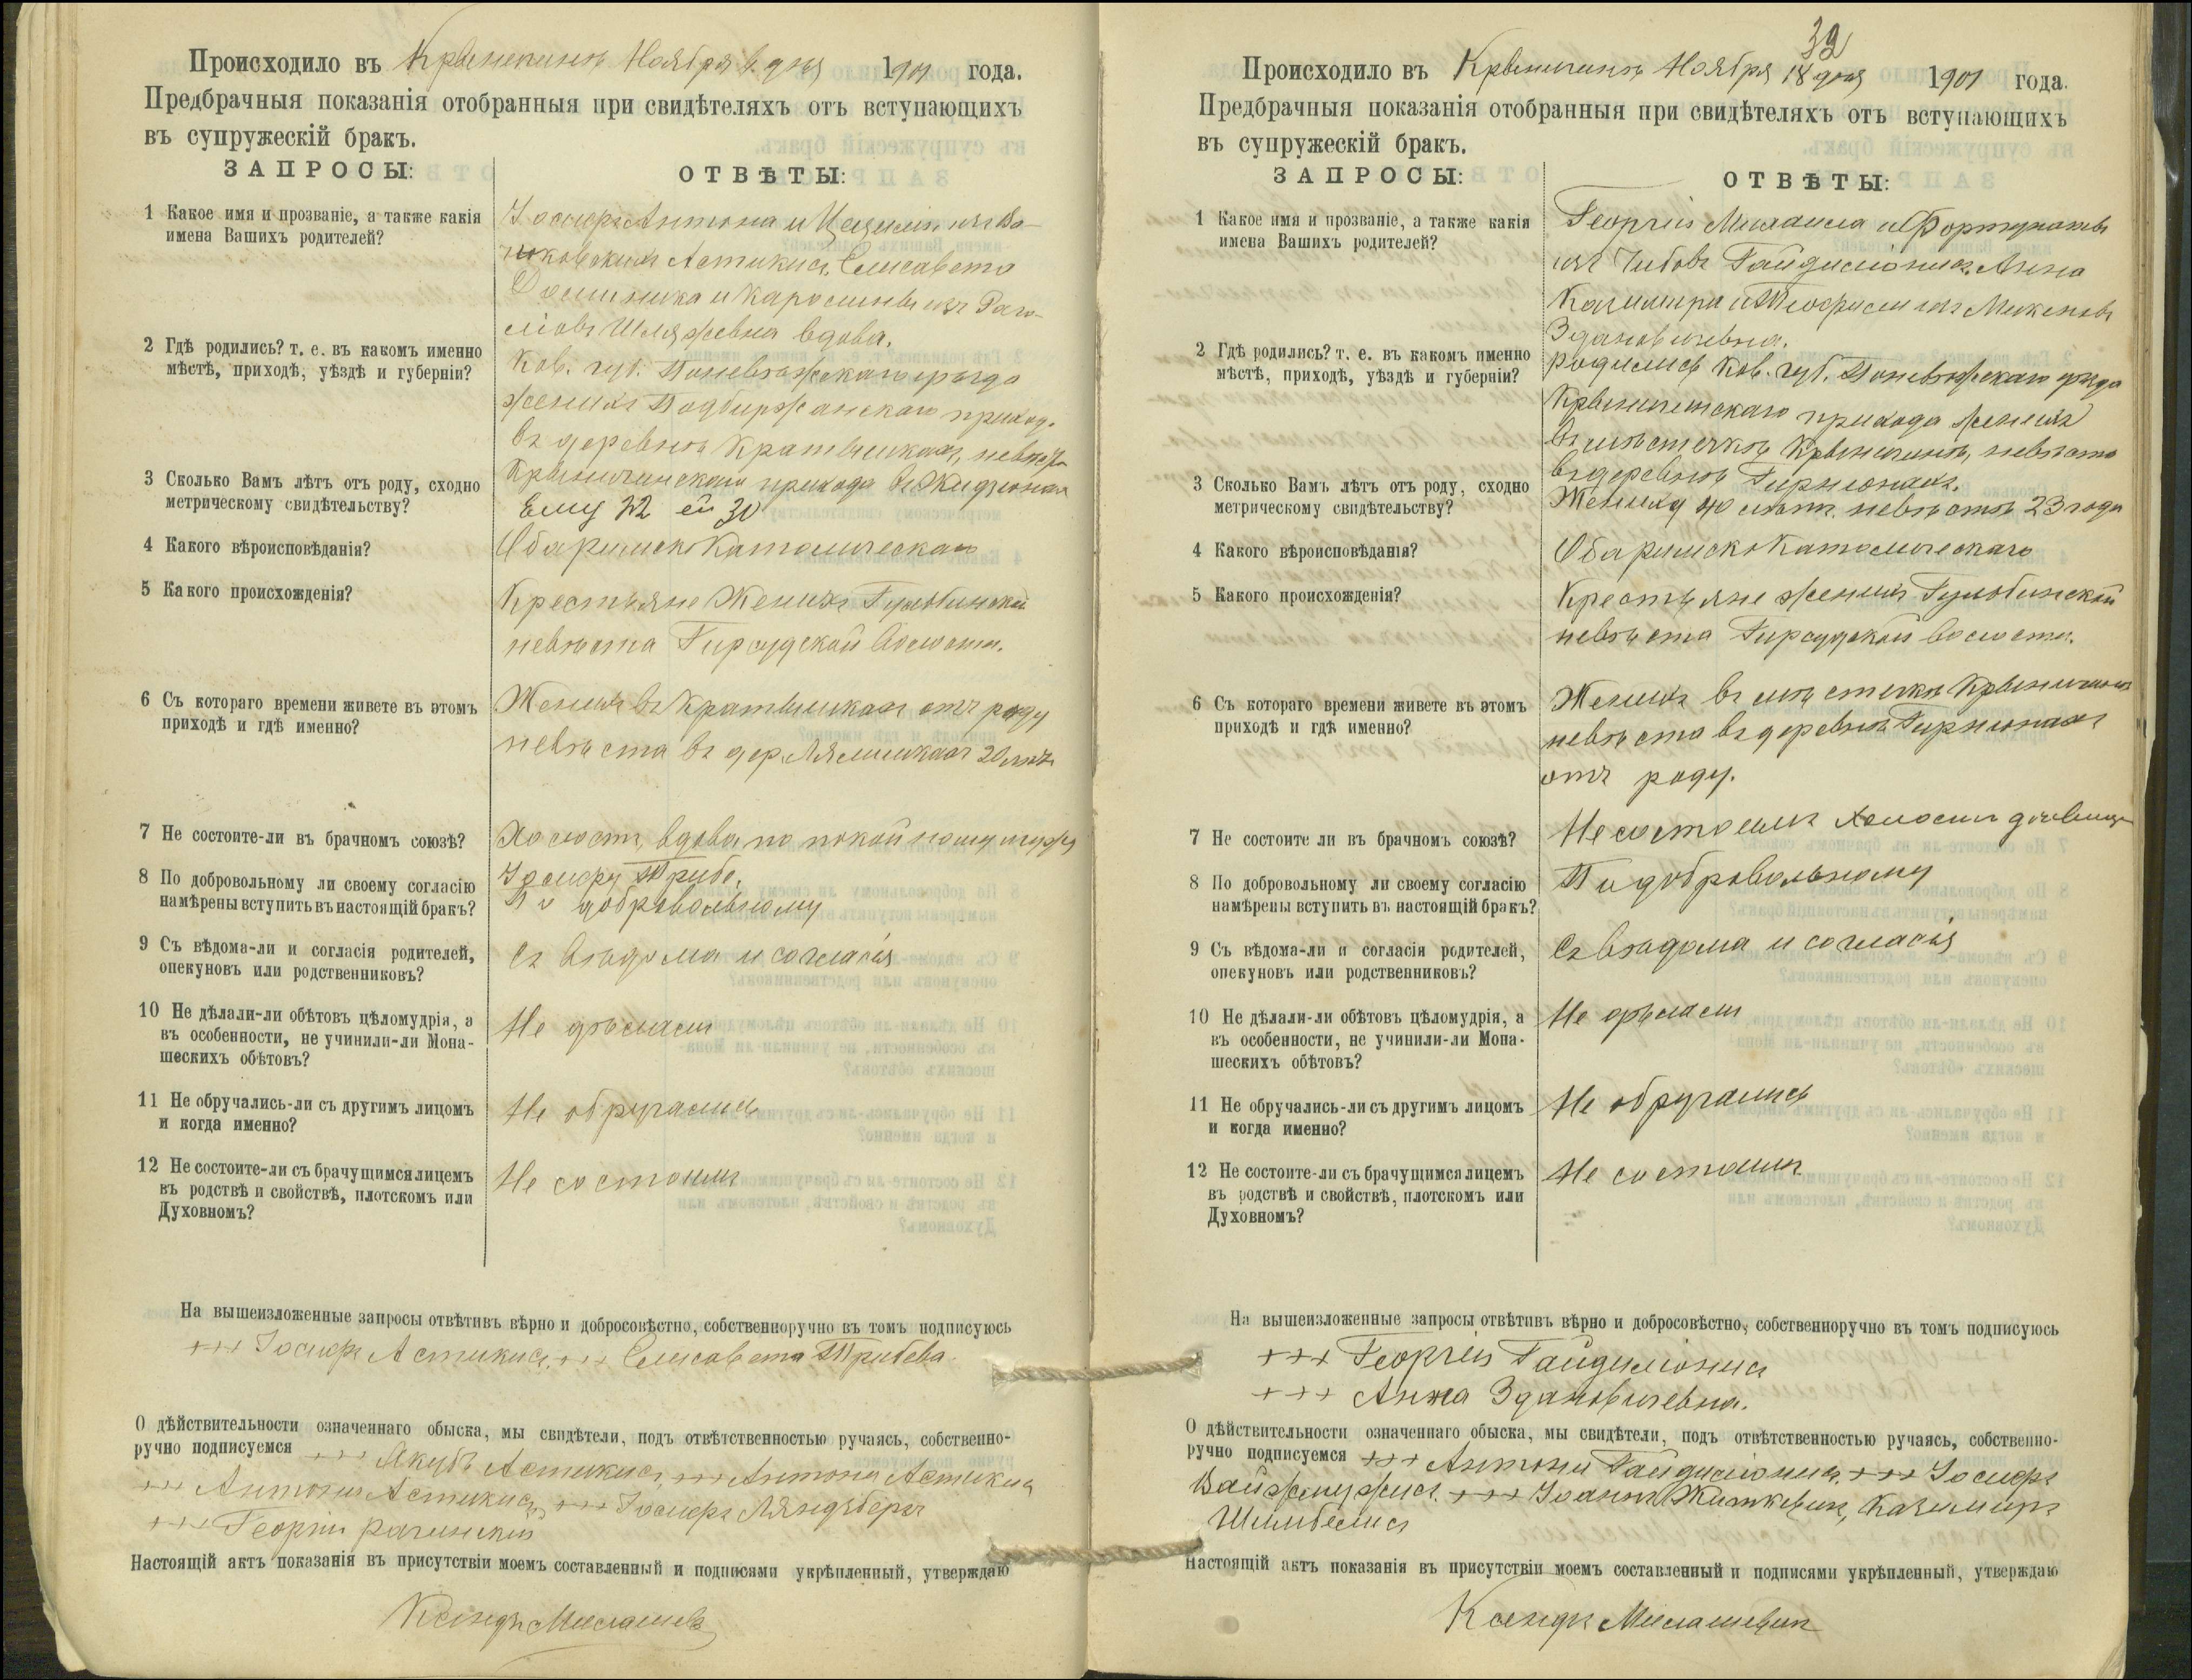 Происходило въ Крыничинѣ Ноября 6 дня 1901 года.
Предбрачныя показанія отобранныя при свидѣтеляхъ отъ вступающихъ
въ супружескій бракъ.
ЗАПРОСЫ: ОТВѢТЫ:
1 Какое имя и прозваніе, а также какія
имена Вашихъ родителей?
Іосифъ Антона и Цециліи изъ
Астикисъ, Елисавета
Доминика и Каролины изъ
Шляжевна вдова.
2 Гдѣ родились? т. е. въ какомъ именно
мѣстѣ, приходѣ, уѣздѣ и губерніи?
Ков. губ. Поневѣжскаго уѣзда
женихъ Подбиржанскаго приход.
въ деревнѣ Кратышкахъ, невѣста
Крыничинскаго прихода въ
3 Сколько Вамъ лѣтъ отъ роду, сходно
метрическому свидѣтельству?
Ему 22 ей 30
4 Какого вѣроисповѣданія?
Оба римско Католическаго
5 Какого происхожденія?
Крестьяне Женихъ Гульбинской
невѣста Гирсудской волости.
6 Съ котораго времени живете въ этомъ
приходѣ и гдѣ именно?
Женихъ въ Кратышкахъ отъ роду
невѣста въ дер. Лялишкахъ 20 лѣтъ
7 Не состоите-ли въ брачномъ союзѣ?
Холостъ, вдова по покойному мужу
Іосифу Трибе.
8 По добровольному ли своему согласію
намѣрены вступить въ настоящій бракъ?
По добровольному
9 Съ вѣдома-ли и согласія родителей,
опекуновъ или родственниковъ?
Съ вѣдома и согласія
10 Не дѣлали-ли обѣтовъ цѣломудрія, а
въ особенности, не учинили-ли Мона-
шескихъ обѣтовъ?
Не дѣлали
11 Не обручались-ли съ другимъ лицомъ
и когда именно?
Не обручались
12 Не состоите-ли съ брачущимся лицемъ
въ родствѣ и свойствѣ, плотскомъ или
Духовномъ?
Не состоимъ
На вышеизложенные запросы отвѣтивъ вѣрно и добросовѣстно, собственноручно въ томъ подписуюсь
+++ Іосифъ Астикисъ, +++ Елисавета Трибева.
О дѣйствительности означеннаго обыска, мы свидѣтели, подъ отвѣтственностью ручаясь, собственно-
ручно подписуемся +++ Якубъ Астикисъ, +++ Антони Астикисъ
+++ Антони Астикисъ, +++ Іосифъ Ляндзбергъ
+++ Георгій Рагинскій
Настоящій актъ показанія въ присутствіи моемъ составленный и подписями укрѣпленный, утверждаю
Ксендзъ Милашев
39
Происходило въ Крыничинѣ Ноября 18 дня 1901 года.
Предбрачныя показанія отобранныя при свидѣтеляхъ отъ вступающихъ
въ супружескій бракъ.
ЗАПРОСЫ: ОТВѢТЫ:
1 Какое имя и прозваніе, а также какія
имена Вашихъ родителей?
Георгій Михаила и Фортунаты
изъ Чибовъ Гайдиліонисъ. Анна
Казимира и Теофили изъ
Здановичевна.
2 Гдѣ родились? т. е. въ какомъ именно
мѣстѣ, приходѣ, уѣздѣ и губерніи?
родились Ков. губ. Поневѣжскаго уѣзда
Крыничинскаго прихода женихъ
въ мѣстечкѣ Крыничинѣ, невѣста
въ деревнѣ Гирнюнахъ.
3 Сколько Вамъ лѣтъ отъ роду, сходно
метрическому свидѣтельству?
Жениху 40 лѣтъ. невѣстѣ 23 года
4 Какого вѣроисповѣданія?
Оба римско Католическаго
5 Какого происхожденія?
Крестьяне женихъ Гульбинской
невѣста Гирсудской волости.
6 Съ котораго времени живете въ этомъ
приходѣ и гдѣ именно?
Женихъ въ мѣстечкѣ Крыничинѣ
невѣста въ деревнѣ Гирнюнахъ
отъ роду.
7 Не состоите ли въ брачномъ союзѣ?
Не состоимъ холостъ дѣвица
8 По добровольному ли своему согласію
намѣрены вступить въ настоящій бракъ?
По добровольному
9 Съ вѣдома-ли и согласія родителей,
опекуновъ или родственниковъ?
Съ вѣдома и согласія
10 Не дѣлали-ли обѣтовъ цѣломудрія, а
въ особенности, не учинили-ли Мона-
шескихъ обѣтовъ?
Не дѣлали
11 Не обручались-ли съ другимъ лицомъ
и когда именно?
Не обручались
12 Не состоите-ли съ брачущимся лицемъ
въ родствѣ и свойствѣ, плотскомъ или
Духовномъ?
Не состоимъ
На вышеизложенные запросы отвѣтивъ вѣрно и добросовѣстно, собственноручно въ томъ подписуюсь
+++ Георгій Гайдиліонисъ
+++ Анна Здановичевна.
О дѣйствительности означеннаго обыска, мы свидѣтели, подъ отвѣтственностью ручаясь, собственно-
ручно подписуемся +++ Антони Гайдиліонисъ. +++ Іосифъ
Вайжмужисъ. +++ Іоаннъ Житкевичъ, Казимиръ
Шимбелисъ
Настоящій актъ показанія въ присутствіи моемъ составленный и подписями укрѣпленный, утверждаю
Ксендзъ Милашевичъ